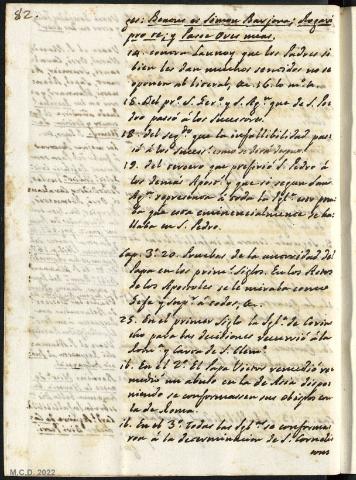 82.
ges: Beatus es Simon Barjona; Rogavi
pro te; y Pasce Oves meas.
14. contra Launoy que los Padres si
bien les dan muchos sentidos no se
oponen al literal, &. 16. lo mta.
15. Del pr.o S. Ger.o y S. Ag.n que de S. Pe
dro pasó á los Sucesores.
18. del seg.do que la infallibilidad pa
só á los suces.s
19. del tercero que prefirió S. Pedro á
los demas Apost.s y que se segun San
Ag.n representava á toda la Igl.a era prue
ba que esta eminencialmente se ha
llaba en S. Pedro.
Cap. 3.o 20. Pruebas de la autoridad del
Papa en los prim.s Siglos. En los Actos
de los Apostoles se le mirava como
Gefe y Sup.r á todos, &.
25. En el primer Siglo la Igl.a de Corin
tho para las decisiones recurrió á la
Carta de S. Clem.te
ib. En el 2.o El Papa Victor remedió
un abuso en la de Asia dispo
niendo se conformasen sus obispos con
la de Roma.
ib. En el 3.o Todas las Igl.s se conforma
ron á la determinacion de S.n Cornelio
M.C.D. 2022